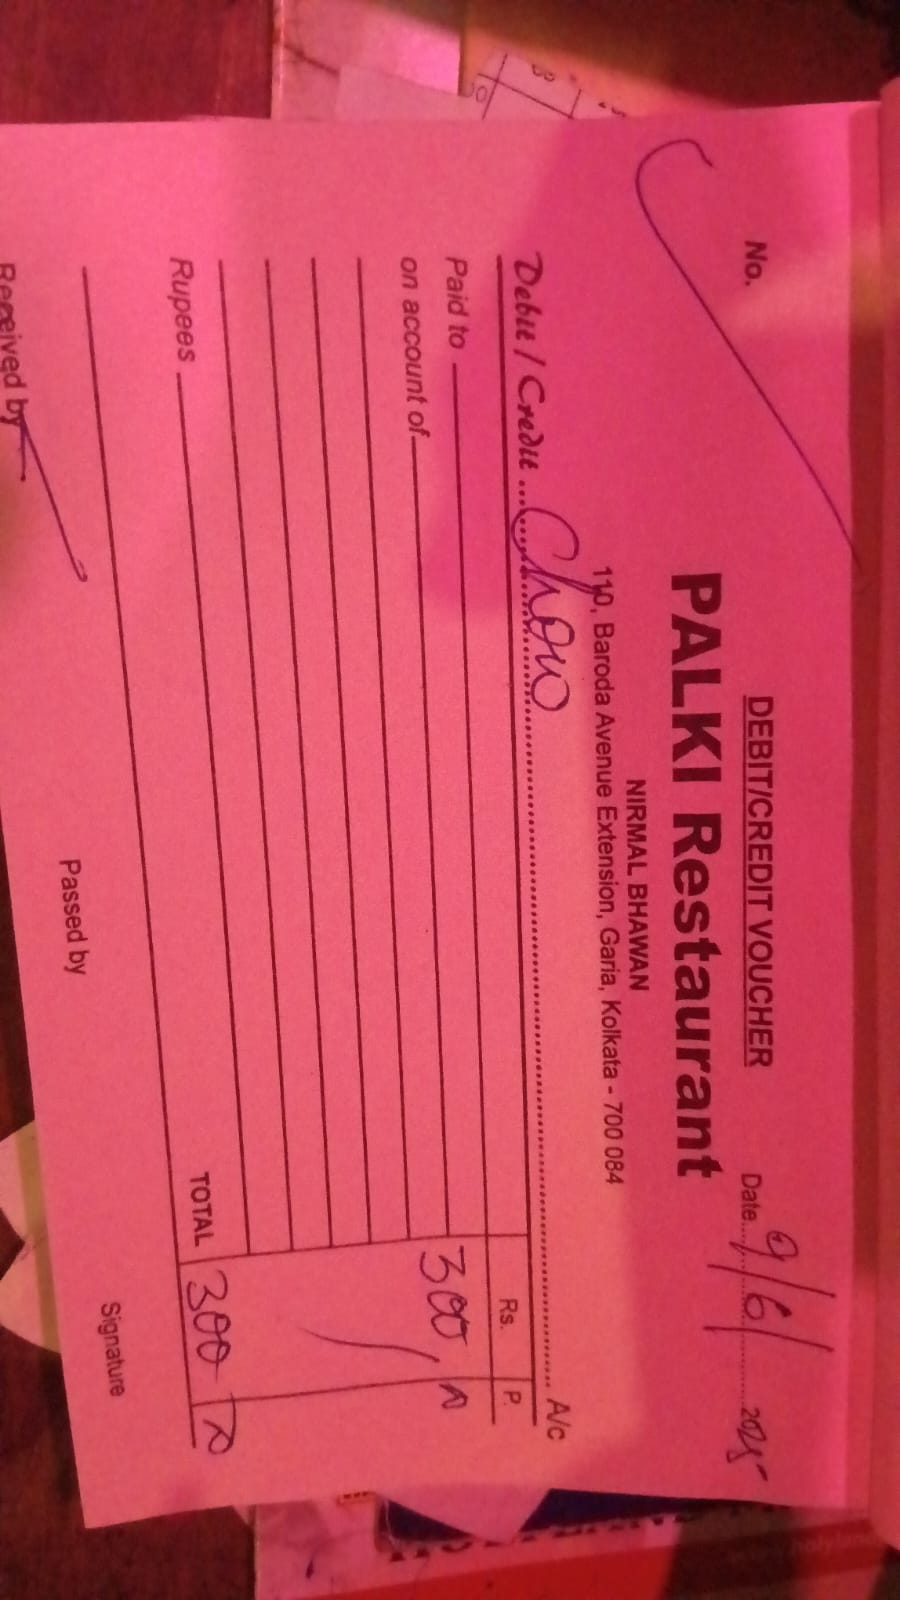 DEBIT/CREDIT VOUCHER
No. Date 9/6/2025
PALKI Restaurant
NIRMAL BHAWAN
110, Baroda Avenue Extension, Garia, Kolkata - 700 084
Debit / Credit ... Chow ... A/c
Rs. P.
Paid to 300
on account of
Rupees TOTAL 300
Received by Passed by Signature